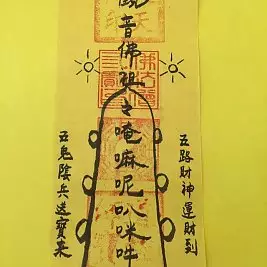 音佛祖々唵嘛呢叭咪吽
五路財神運財到
五鬼陰兵送寶來